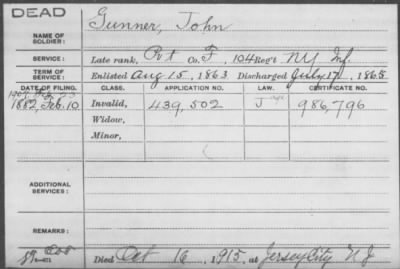 DEAD
NAME OF SOLDIER: Gunner, John
SERVICE: Late rank, Pvt Co. F, 104 Reg't NY Inf.
TERM OF SERVICE: Enlisted Aug 15, 1863 Discharged July 17, 1865
DATE OF FILING. CLASS. APPLICATION NO. LAW. CERTIFICATE NO.
1882, Feb. 10 Invalid, 439,502 J 986,796
Widow,
Minor,
ADDITIONAL SERVICES:
REMARKS:
Died Oct 16, 1915, at Jersey City N J